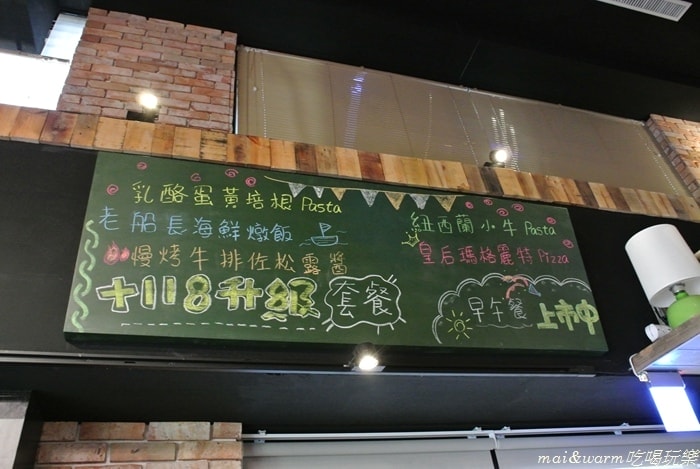 乳酪蛋黃培根 Pasta
老船長海鮮燉飯
慢烤牛排佐松露醬
+118升級套餐
紐西蘭小牛 Pasta
皇后瑪格麗特 Pizza
早午餐上市中
mai&warm吃喝玩樂